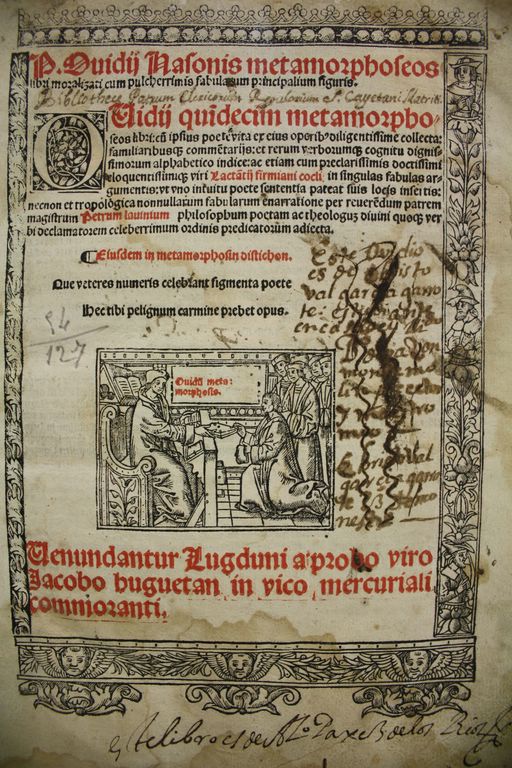 P. Ouidij Nasonis metamorphoseos
libri moralizati cum pulcherrimis fabularum principalium figuris.
Bibliothecę Patrum Clericorum Regularium S. Cayetani Matriti
OUidij quidecim metamorpho⸗
seos libricū ipsius poetę vita ex eius operibꝰ diligentissime collecta:
familiaribusqꝫ commētarijs: et rerum verborumqꝫ cognitu dignis⸗
simorum alphabetico indice: ac etiam cum preclarissimis doctissimi
eloquentissimiqꝫ viri Lactātij firmiani coeli: in singulas fabulas ar⸗
gumentis: vt vno intuitu poete sententia pateat suis locis insertis:
necnon et tropologica nonnullarum fabularum enarratione per reuerēdum patrem
magistrum Petrum lauinium philosophum poetam ac theologū: diuini quoqꝫ ver
bi declamatorem celeberrimum ordinis predicatorum adiecta.
¶ Eiusdem in metamorphosin distichon.
Que veteres numeris celebrant figmenta poete
Hec tibi pelignum carmine prebet opus.
54
127
Este Ouidio
es de
val garcia
Ouidij meta⸗
morphosis.
Uenundantur Lugduni a probo viro
Jacobo huguetan in vico mercuriali
commoranti.
este libro es de Aº Paez de los Rios